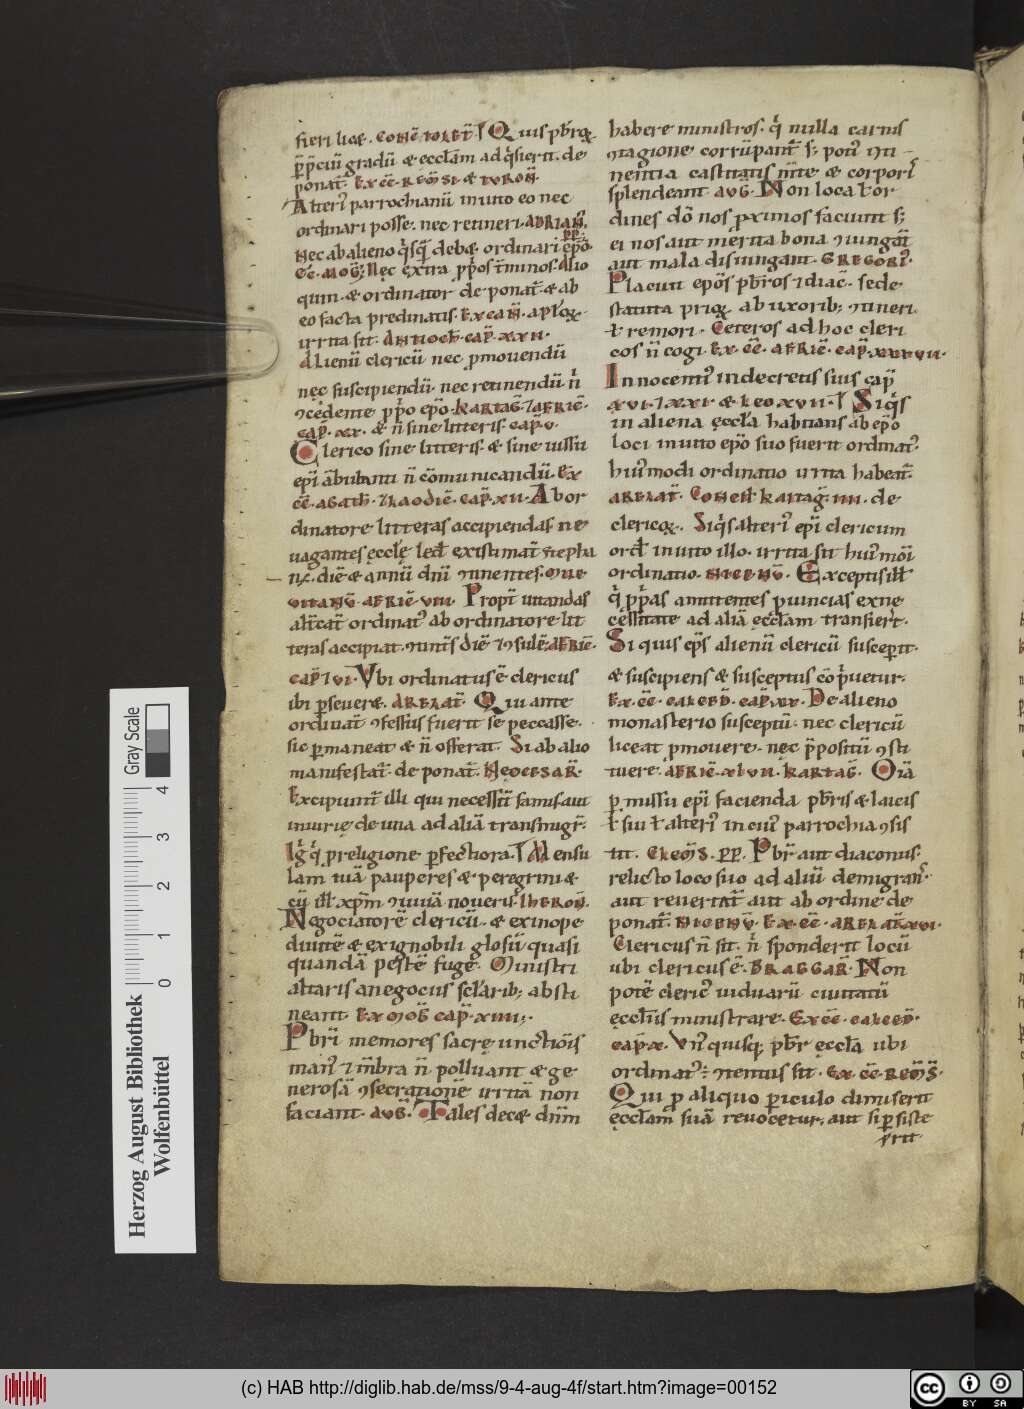 fieri licæ. CONC̄ TOLET̄. Quis pb̄roꝝ
p̄p̄ciū gradū æ eccłam adq̇sierit. de
ponat̄. EX CC̄. REM̄SI. æ TVRON̄.
Alteri᷒ parrochianū inuito eo nec
ordinari posse. nec retineri. ADRIAN̄. PP.
Nec ab alieno q̇sq̄ debæ ordinari ep̄o.
Nec extra p̄pos t̄minos. alio
quin. æ ordinator de ponat̄. æ ab
eo facta predinatis. EX CAN̄. AP̄LOꝝ
irrita sit. ANTIOCH̄. CAP̄. XXII.
Alienū clericū nec ꝓmouendū
nec suscipiendū. nec retinendū n̄
ꝯcedente p̄p̄o ep̄o. KARTAḠ. ⁊ AFRIC̄.
CAP̄. XX. æ n̄ sine litteris. CAP̄. V.
Clerico sine litteris. æ sine iussu
ep̄i ābulanti n̄ cōmunicandū. EX
CC̄. AGATH̄. ⁊ LAODIC̄. CAP̄. XII. Ab or
dinatore litteras accipiendas ne
uagantes ęcclę led̄. existimat̄
diē æ annū dn̄i ꝯtinentes.
AFRIC̄. VIII. Propt̄ uitandas
alt̄cat̄ ordinat᷒ ab ordinatore lit
teras accipiat. ꝯtint̄s diē ⁊ ꝯsulē. AFRIC̄.
CAP̄. LVI. Vbi ordinatus ē clericus
ibi ꝑseueræ. ARELAT̄. Qui ante
ordinat̄ ꝯfessus fuerit se peccasse.
sic ꝑmaneat æ n̄ offerat. Si ab alio
manifestat̄. de ponat̄. NEOCESAR̄.
Excipiunt̄ illi qui necessit̄ famis aut
iniurię de una ad aliā transmigr̄.
p religione ꝑfectiora. Mensu
lam tuā pauperes æ peregrini æ
cū ill̄ xp̄m ꝯuiuā nouer̄. IHERON̄.
Negociatorē clericū. æ ex inope
diuitē æ ex ignobili glosū quasi
quandā pestē fuge. Ministri
altaris a negociis scl̄arib; absti
neant. EX MOḠ CAP̄. XIIII.
Pbr̄i memores sacrę unctiōis
man᷒ ⁊ m̄bra n̄ polluant æ ge
nerosā ꝯsecrationē irritā non
faciant. AVḠ. Tales decæ dn̄m
habere ministros. q̇ nulla carnis
ꝯtagione corrūpant̄ s; poti᷒ ꝯti
nentia castitatis m̄te æ corpori᷒
splendeant AVḠ. Non loca ł or
dines dō nos ꝓximos faciunt s;
ei nos aut merita bona ꝯiungūt
aut mala disiungunt. GREGORI᷒.
Placuit ep̄os pbr̄os ⁊ diac̄. sede
statuta prioꝝ ab uxorib; ꝯtineri.
ł remoꝛi. Ceteros ad hoc cleri
cos n̄ cogi. EX CC̄. AFRIC̄. CAP̄. XXXVII.
Innocenti᷒ in decretis suis cap̄
XVI. ⁊ XXI. æ LEO XVII. Siq̇s
in aliena ęccła habitans ab ep̄o
loci inuito ep̄o suo fuerit ordinat᷒
hui᷒modi ordinatio irrita habeat̄.
ARELAT̄. CONCIL̄ KARTAḠ. IIII. de
clericoꝝ. Siq̇s alteri᷒ ep̄i clericum
ord̄ inuito illo. irrita sit hui᷒mōi
ordinatio. NICENV̄. Exceptis ill̄
q̇ p̄p̄as amittentes puincias ex ne
cessitate ad aliā ęccłam transier̄t.
Si quis ep̄s alienū clericū susceꝑit.
æ suscipiens æ susceptus cōp̄uetur.
EX CC̄. CALCED̄. CAP̄. XX. De alieno
monasterio susceptū. nec clericū
liceat ꝓmouere. nęc p̄positū ꝯsti
tuere. AFRIC̄. XLVII. KARTAḠ. Oīa
ꝑ missū ep̄i facienda pbr̄is æ laicis
ł sui ł alteri᷒ in cui᷒ parrochia ꝯsis
tit. CLEM̄S. PP. Pbr̄ aut diaconus
relicto loco suo ad aliū demigran᷒.
aut reuertat̄ aut ab ordine de
ponat̄. NICENV̄. EX CC̄. ARELAT̄. XVI.
Clericus n̄ sit. n̄ sponderit locū
ubi clericus ē. BRAGGAR̄. Non
potē cleric᷒ uiduarū ciuitatū
ęccłiis ministrare. EX CC̄. CALCED̄.
CAP̄. X. Vn᷒ quisq; pbr̄ ęccła ubi
ordinat᷒ ꝯtentus sit. EX CC̄. REM̄S̄.
Qui ꝓ aliquo ꝑiculo dimiserit
ęccłam suā reuocetur. aut si ꝑ siste
rit
Gray Scale
0 1 2 3 4
Herzog August Bibliothek
Wolfenbüttel
(c) HAB http://diglib.hab.de/mss/9-4-aug-4f/start.htm?image=00152
cc BY SA